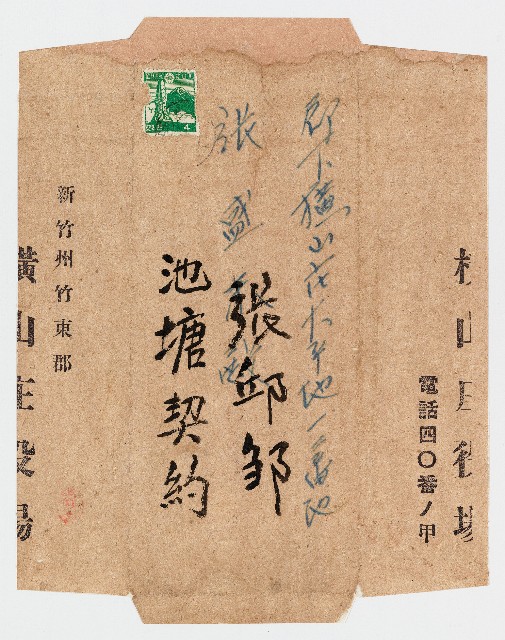 横山庄役場
電話四〇番ノ甲
郡下橫山庄大平地一番地
張盛
張邱鄒
池塘契約
新竹州竹東郡
橫山庄役場
4